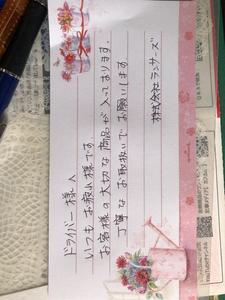 ドライバー様へ
いつもお疲れ様です。
お客様の大切な商品が入っております。
丁寧なお取扱いでお願いします
株式会社ランサーズ